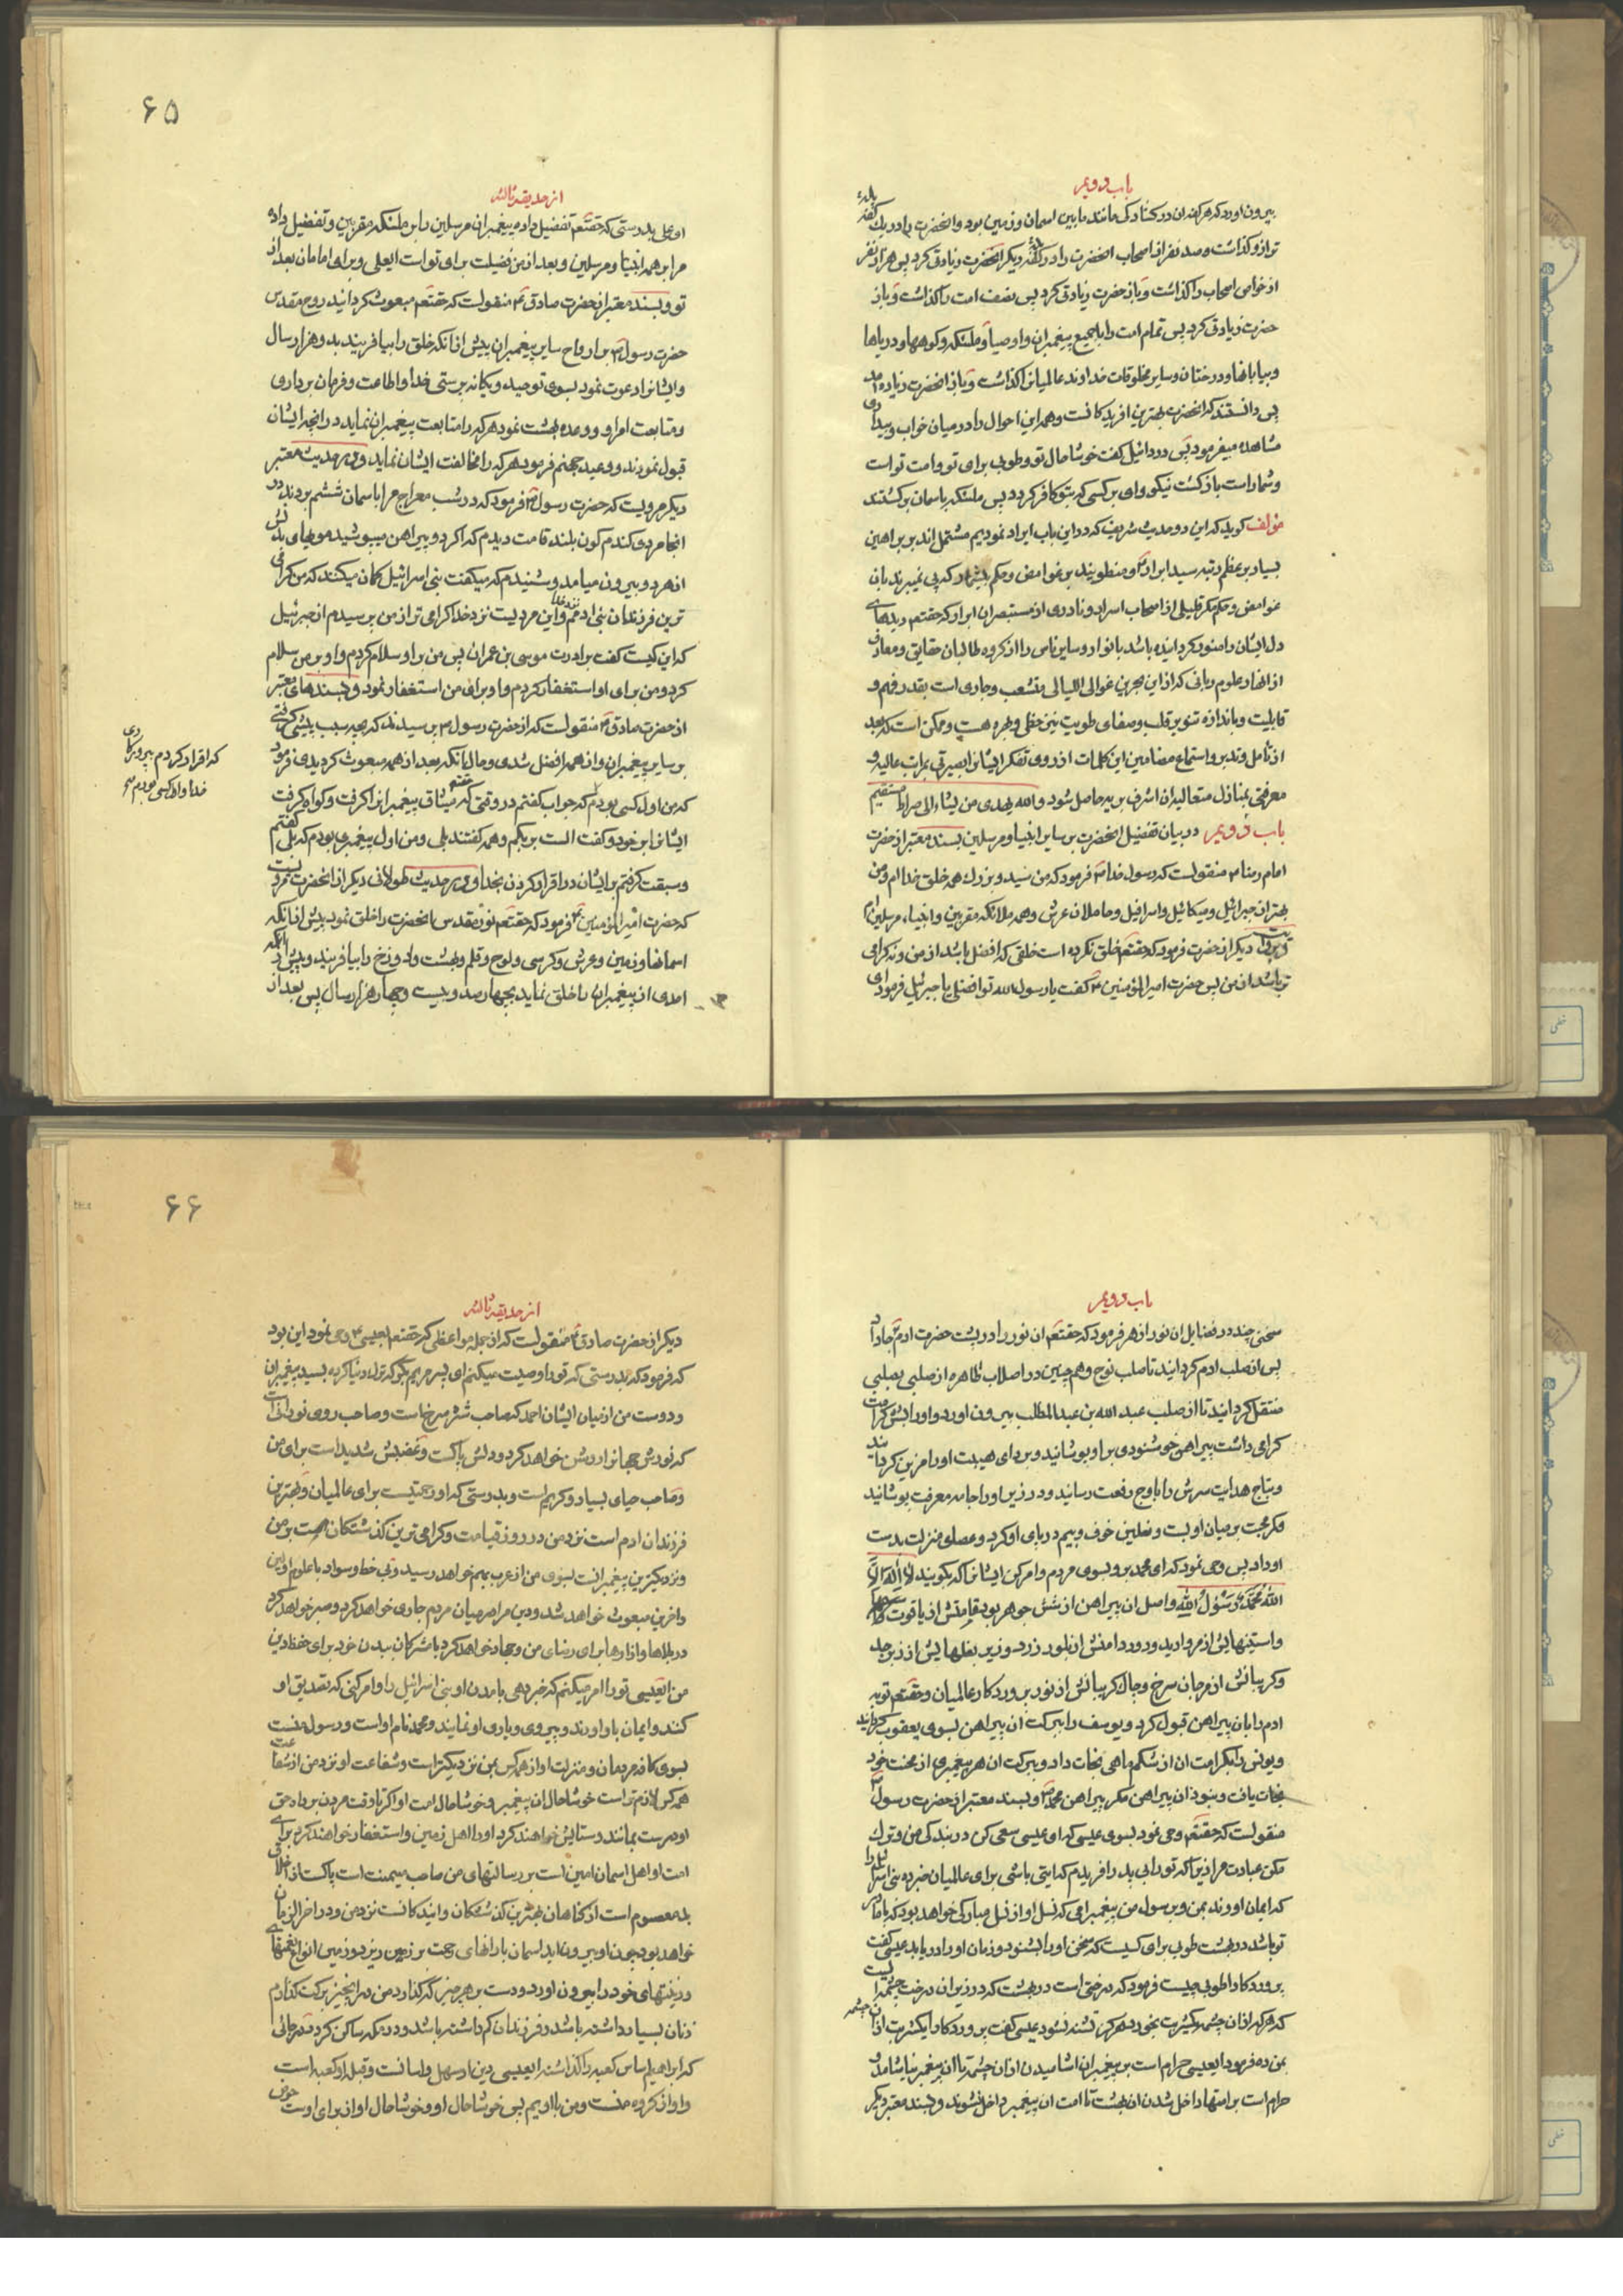 باب دویم
بیرون اورد که هر کفه ان در کشادکی مانند مابین اسمان و زمین بود و انحضرت را در یک کفه
ترازو کذاشت و صد نفر از اصحاب انحضرت را در کفه دیکر انحضرت زیادتی کرد پس هزار نفر
از خواص اصحاب را کذاشت و باز حضرت زیادتی کرد پس نصف امت را کذاشت و باز
حضرت زیادتی کرد پس تمام امت را با جمیع پیغمبران و اوصیا و ملئکه و کوهها و دریاها
و بیابانها و درختان و سایر مخلوقات خداوند عالمیان کذاشت و باز انحضرت زیاده امد
پس دانستند که انحضرت بهترین افریدکانست و همه این احوال را در میان خواب و بیداری
مشاهده میفرمود پس دردائیل کفت خوشا حال تو و طوبی برای تو و امت تو است
و شما راست بازکشت نیکو وای بر کسی که بتو کافر کردد پس ملئکه باسمان برکشتند
مولف کوید که این دو حدیث شریف که در این باب ایراد نمودیم مشتمل اند بر براهین
بسیار بر عظم رتبه سید ابرار و منطویند بر غوامض و حکم بیشمار که پی نمیبرند بان
غوامض و حکم مکر قلیلی از اصحاب اسرار و نادری از مستبصران ابرار که حقتعم دیدهای
دل ایشان را منور کردانیده باشد بانوار و سایر ناس را از کروه طالبان حقایق و معارف
از انهار علوم ربانی که از این بحرین غوالی اللیالی منشعب و جاری است بقدر فهم و
قابلیت و باندازه تنویر قلب و صفای طویت نیز حظی و بهره هست و ممکن است که بعد
از تامل و تدبر و استماع مضامین این کلمات از روی تفکر ایشانرا بصیرتی بمراتب عالیه و
معرفتی بمنازل متعالیه ان اشرف بریه حاصل شود والله یهدی من یشاء الی صراط مستقیم
باب دویم در بیان تفضیل انحضرت بر سایر انبیا و مرسلین بسند معتبر از حضرت
امام رضا منقولست که رسول خدا فرمود که من سید و بزرک همه خلق خدا ام و من
بهتر از جبرائیل و میکائیل و اسرافیل و حاملان عرش و همه ملائکه مقربین و انبیاء مرسلین ام
دیکر از حضرت فرمود که حقتعم خلق نکرده است خلقی که افضل باشد از من و نه کرامی
تر باشد از من پس حضرت امیرالمؤمنین کفت یا رسول الله تو افضلی یا جبرئیل فرمود ای
۶۵
از حدیقه ثالثه
ای علی بدرستی که حقتعم تفضیل داده پیغمبران مرسلین را بر ملئکه مقربین و تفضیل داده
مرا بر همه انبیا و مرسلین و بعد از من فضیلت برای تو است ایعلی و برای امامان بعد از
تو و بسند معتبر از حضرت صادق منقولست که حقتعم مبعوث کردانید روح مقدس
حضرت رسول بر ارواح سایر پیغمبران پیش از انکه خلق را بیافریند بدو هزار سال
و ایشانرا دعوت نمود بسوی توحید و یکانه پرستی خدا و اطاعت و فرمان برداری
و متابعت امر او و وعده بهشت نمود هر که را متابعت پیغمبران نماید در انچه ایشان
قبول نمودند و وعید جهنم فرمود هر که را مخالفت ایشان نماید و در حدیث معتبر
دیکر مرویست که حضرت رسول فرمود که در شب معراج مرا باسمان ششم بردند در
انجا مردی کندم کون بلند قامت دیدم که اکر دو پیراهن میپوشید موهای بدنش
از هر دو بیرون میامد و شنیدم که میکفت بنی اسرائیل کمان میکنند که من کرامی
ترین فرزندان بنی ادمم نزد خدا و این مردیست نزد خدا کرامی تر از من پرسیدم از جبرئیل
که این کیست کفت برادرت موسی بن عمران پس من بر او سلام کردم و او بر من سلام
کرد و من برای او استغفار کردم و او برای من استغفار نمود و بسندهای معتبر
از حضرت صادق منقولست که از حضرت رسول پرسیدند که بچه سبب پیشی کرفتی
بر سایر پیغمبران و از همه افضل شدی و حال انکه بعد از همه مبعوث کردیدی فرمود
که من اول کسی بودم که جواب کفتم در وقتی که حقتعم میثاق پیغمبرانرا کرفت و کواه کرفت
ایشانرا بر خود و کفت الست بربکم و همه کفتند بلی و من اول پیغمبری بودم که بلی کفتم
و سبقت کرفتم بر ایشان در اقرار کردن بخدا و در حدیث طولانی دیکر از انحضرت مرویست
که حضرت امیرالمؤمنین فرمود که حقتعم نور مقدس انحضرت را خلق نمود پیش از انکه
اسمانها و زمین و عرش و کرسی و لوح و قلم و بهشت و دوزخ را بیافریند و پیش از انکه
احدی از پیغمبران را خلق نماید بچهارصد و بیست و چهار هزار سال پس بعد از
که اقرار کردم بپروردکاری
خدا و اول کسی بودم
باب دویم
سخنی چند در فضایل ان نور ازهر فرمود که حقتعم ان نور را در پشت حضرت ادم جا داد
پس از صلب ادم کردانید تا صلب نوح و همچنین در اصلاب طاهره از صلبی بصلبی
منتقل کردانید تا از صلب عبدالله بن عبدالمطلب بیرون اورد و او را بشش کرامت
کرامی داشت پیراهن خوشنودی بر او پوشانید و بردای هیبت او را مزین کردانید
و بتاج هدایت سرش را باوج رفعت رسانید و در زیر او را جامه معرفت پوشانید
و کمر محبت بر میان او بست و نعلین خوف و بیم در پای او کرد و عصای منزلت بدست
او داد پس وحی نمود که ای محمد برو بسوی مردم و امر کن ایشانرا که بکویند لا اله الا
الله محمد رسول الله و اصل ان پیراهن از شش جوهر بود قامتش از یاقوت
و استینهایش از مروارید و دور دامنش از بلور زرد و زیر بغلهایش از زبرجد
و کریبانش از مرجان سرخ و چاک کریبانش از نور پروردکار عالمیان و حقتعم توبه
ادم را بان پیراهن قبول کرد و یوسف را ببرکت ان پیراهن بسوی یعقوب کردانید
و یونس را بکرامت ان از شکم ماهی نجات داد و ببرکت ان هر پیغمبری از محنت خود
نجات یافت و نبود ان پیراهن مکر پیراهن محمد و بسند معتبر از حضرت رسول
منقولست که حقتعم وحی نمود بسوی عیسی که ای عیسی سعی کن در بندکی من و ترک
مکن عبادت مرا زیرا که تو را بی پدر افریدم که ایتی باشی برای عالمیان خبر ده بنی اسرائیل را
که ایمان اورند بمن و برسول من پیغمبر امی که نسل او از نسل مبارکی خواهد بود که با مادر
تو باشد در بهشت طوبی برای کسیست که سخن او را بشنود و زمان او را دریابد عیسی کفت
پروردکارا طوبی چیست فرمود که درختی است در بهشت که در زیر ان درخت چشمه ایست
که هر که از ان چشمه یکشربت بخورد هرکز تشنه نشود عیسی کفت پروردکارا یکشربت از ان چشمه
بمن ده فرمود ایعیسی حرام است بر پیغمبران اشامیدن از ان چشمه تا ان پیغمبر نیاشامد و
حرام است بر امتها داخل شدن ان بهشت تا امت ان پیغمبر داخل نشوند و بسند معتبر دیکر
۶۶
از حدیقه ثالثه
دیکر از حضرت صادق منقولست که از جمله مواعظی که حقتعم بعیسی وحی نمود این بود
که فرمود که بدرستی که تو را وصیت میکنم ای پسر مریم بکر که بتول دنیا کرده بسید پیغمبران
و دوست من از میان ایشان احمد که صاحب شتر سرخ است و صاحب روی نورانی است
که نورش جهانرا روشن خواهد کرد و دلش پاکست و غضبش شدید است برای من
و صاحب حیای بسیار و کریم است و بدرستی که او رحمتیست برای عالمیان و بهترین
فرزندان ادم است نزد من در روز قیامت و کرامی ترین کذشتکان هست بر من
و نزدیکترین پیغمبرانست بسوی من از عرب بهم خواهد رسید و بی خط و سواد با علوم اولین
و اخرین مبعوث خواهد شد و دین مرا در میان مردم جاری خواهد کرد و صبر خواهد کرد
در بلاها و ازارها برای رضای من و جهاد خواهد کرد با مشرکان ببدن خود برای حفظ دین
من ایعیسی تو را امر میکنم که خبر دهی بامدن او بنی اسرائیل را و امر کنی که تصدیق او
کنند و ایمان باو اورند و پیروی و یاری او نمایند و محمد نام او است و رسول منست
بسوی کافه مردمان و منزلت او از همه کس بمن نزدیکتر است و شفاعت او نزد من از شفاعت
همه کس لازم تر است خوشا حال ان پیغمبر و خوشا حال امت او اکر تا وقت مردن بر راه حق
او درست بمانند و ستایش خواهند کرد او را اهل زمین و استغفار خواهند کرد برای
امت او اهل اسمان امین است بر رسالتهای من صاحب میمنت است پاکست از اخلاق
بد معصوم است از کناهان بهترین کذشتکان و ایندکانست نزد من و در اخر الزمان
خواهد بود چون او بیرون اید اسمان بارانهای رحمت بر زمین ریزد و زمین انواع نعمتها
و زینتهای خود را بیرون اورد و دست بر هر چیز که کذارد من در انچیز برکت کذارم
زنان بسیار داشته باشد و فرزندان کم داشته باشد و در مکه ساکن کردد در جائی
که ابراهیم اساس کعبه را کذاشته ایعیسی دین او سهل و اسانست و قبله او کعبه است
و او از کروه منست و من با اویم پس خوشا حال او و خوشا حال او از برای اوست حوض